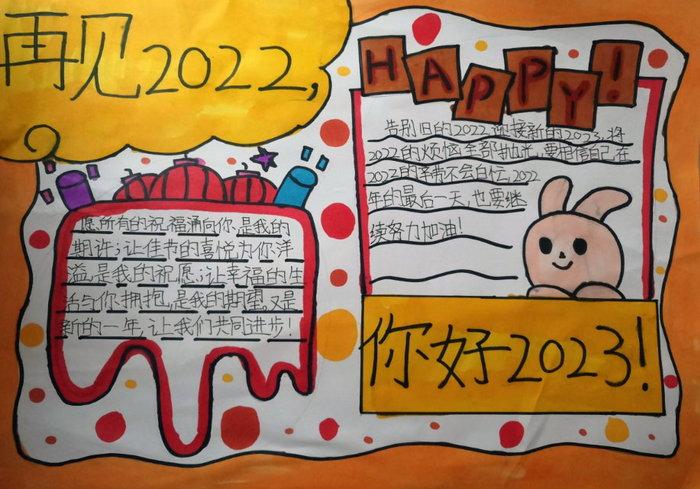 再见2022,
HAPPY!
告别旧的2022迎接新的2023,将
2022的烦恼全部抛光,要相信自己,在
2022的辛苦不会白忙,2022
年的最后一天,也要继
续努力加油!
愿所有的祝福涌向你,是我的
期许;让佳节的喜悦为你洋
溢,是我的祝愿;让幸福的生
活与你拥抱,是我的期望,又是
新的一年,让我们共同进步!
你好2023!